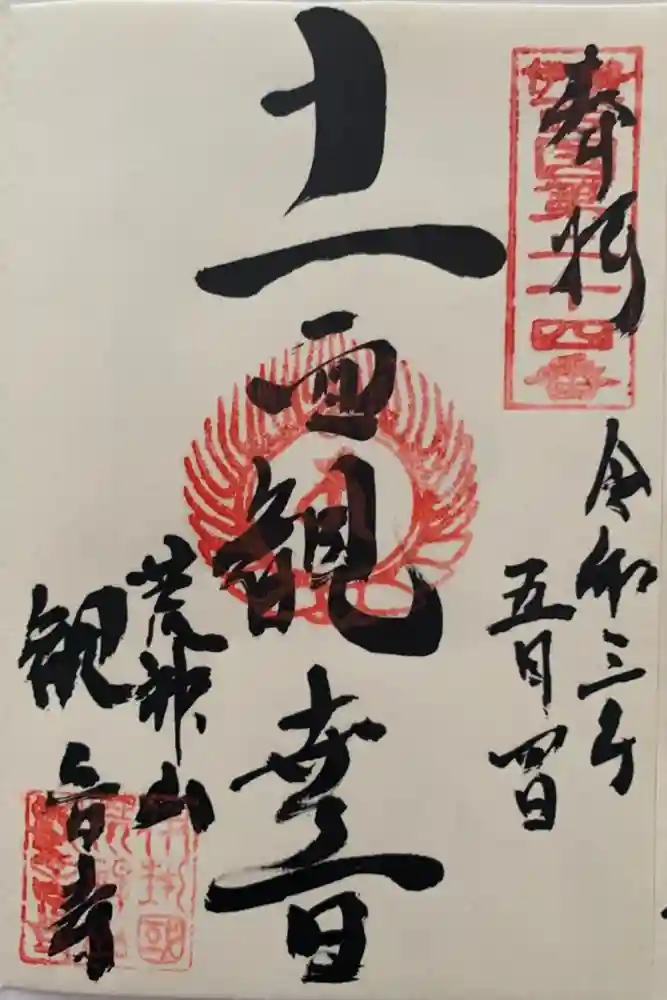 奉拝
国第二十四番
令和三年
五月四日
十一面観世音
荒神山
観音寺